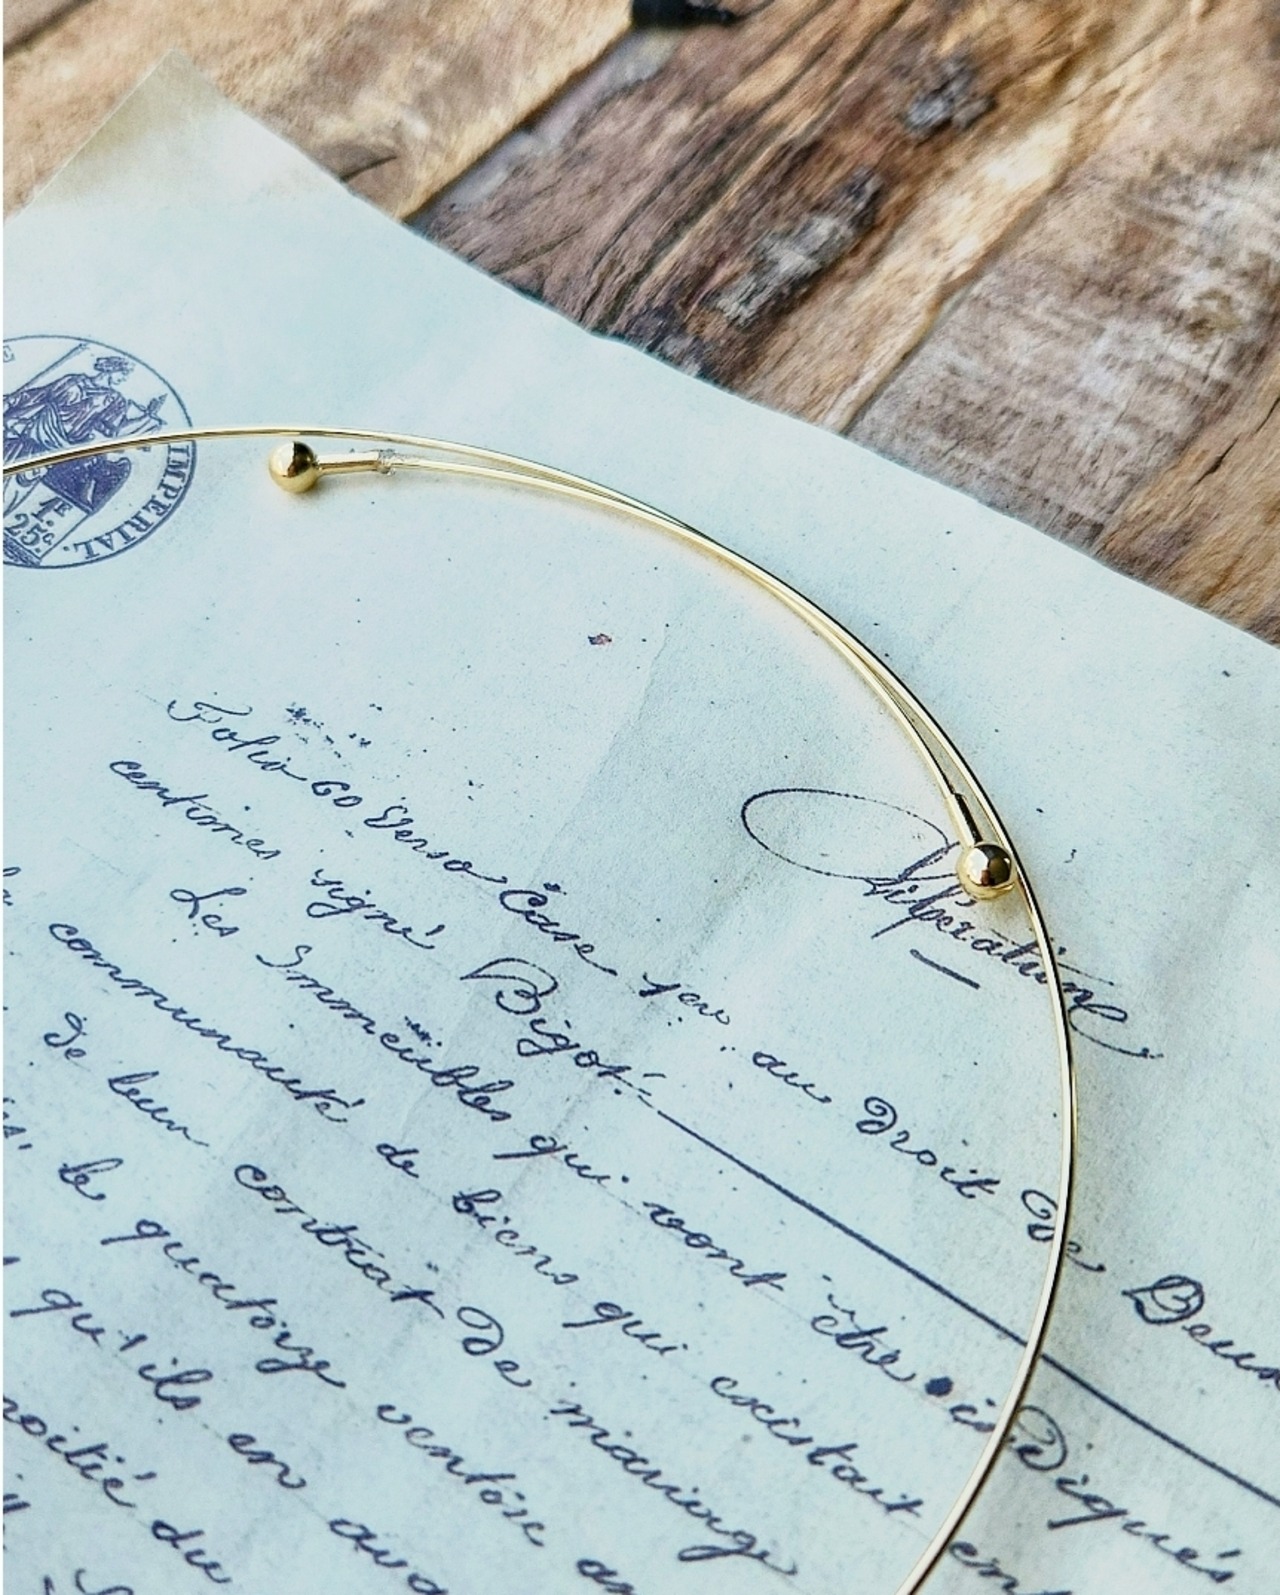 IMPERIAL.
1F.
25c.
Folio 60 Verso Case 1ere au Droit De Deux
centimes signé Bigot.
Libération
Les Immeubles qui vont être ici Désignés
communauté de biens qui existait en
De leur contrat De mariage
le quatorze ventôse an
qu'ils en
moitié du